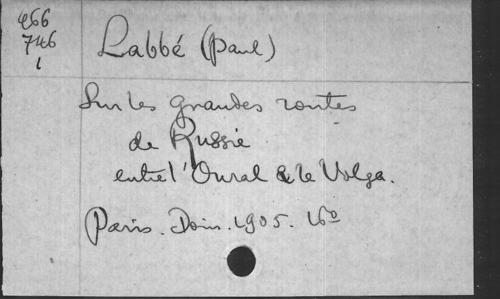 466
746
1
Labbé (Paul)
Sur les grandes routes
de Russie
entre l'Oural & le Volga.
Paris. Doin. 1905. 16º